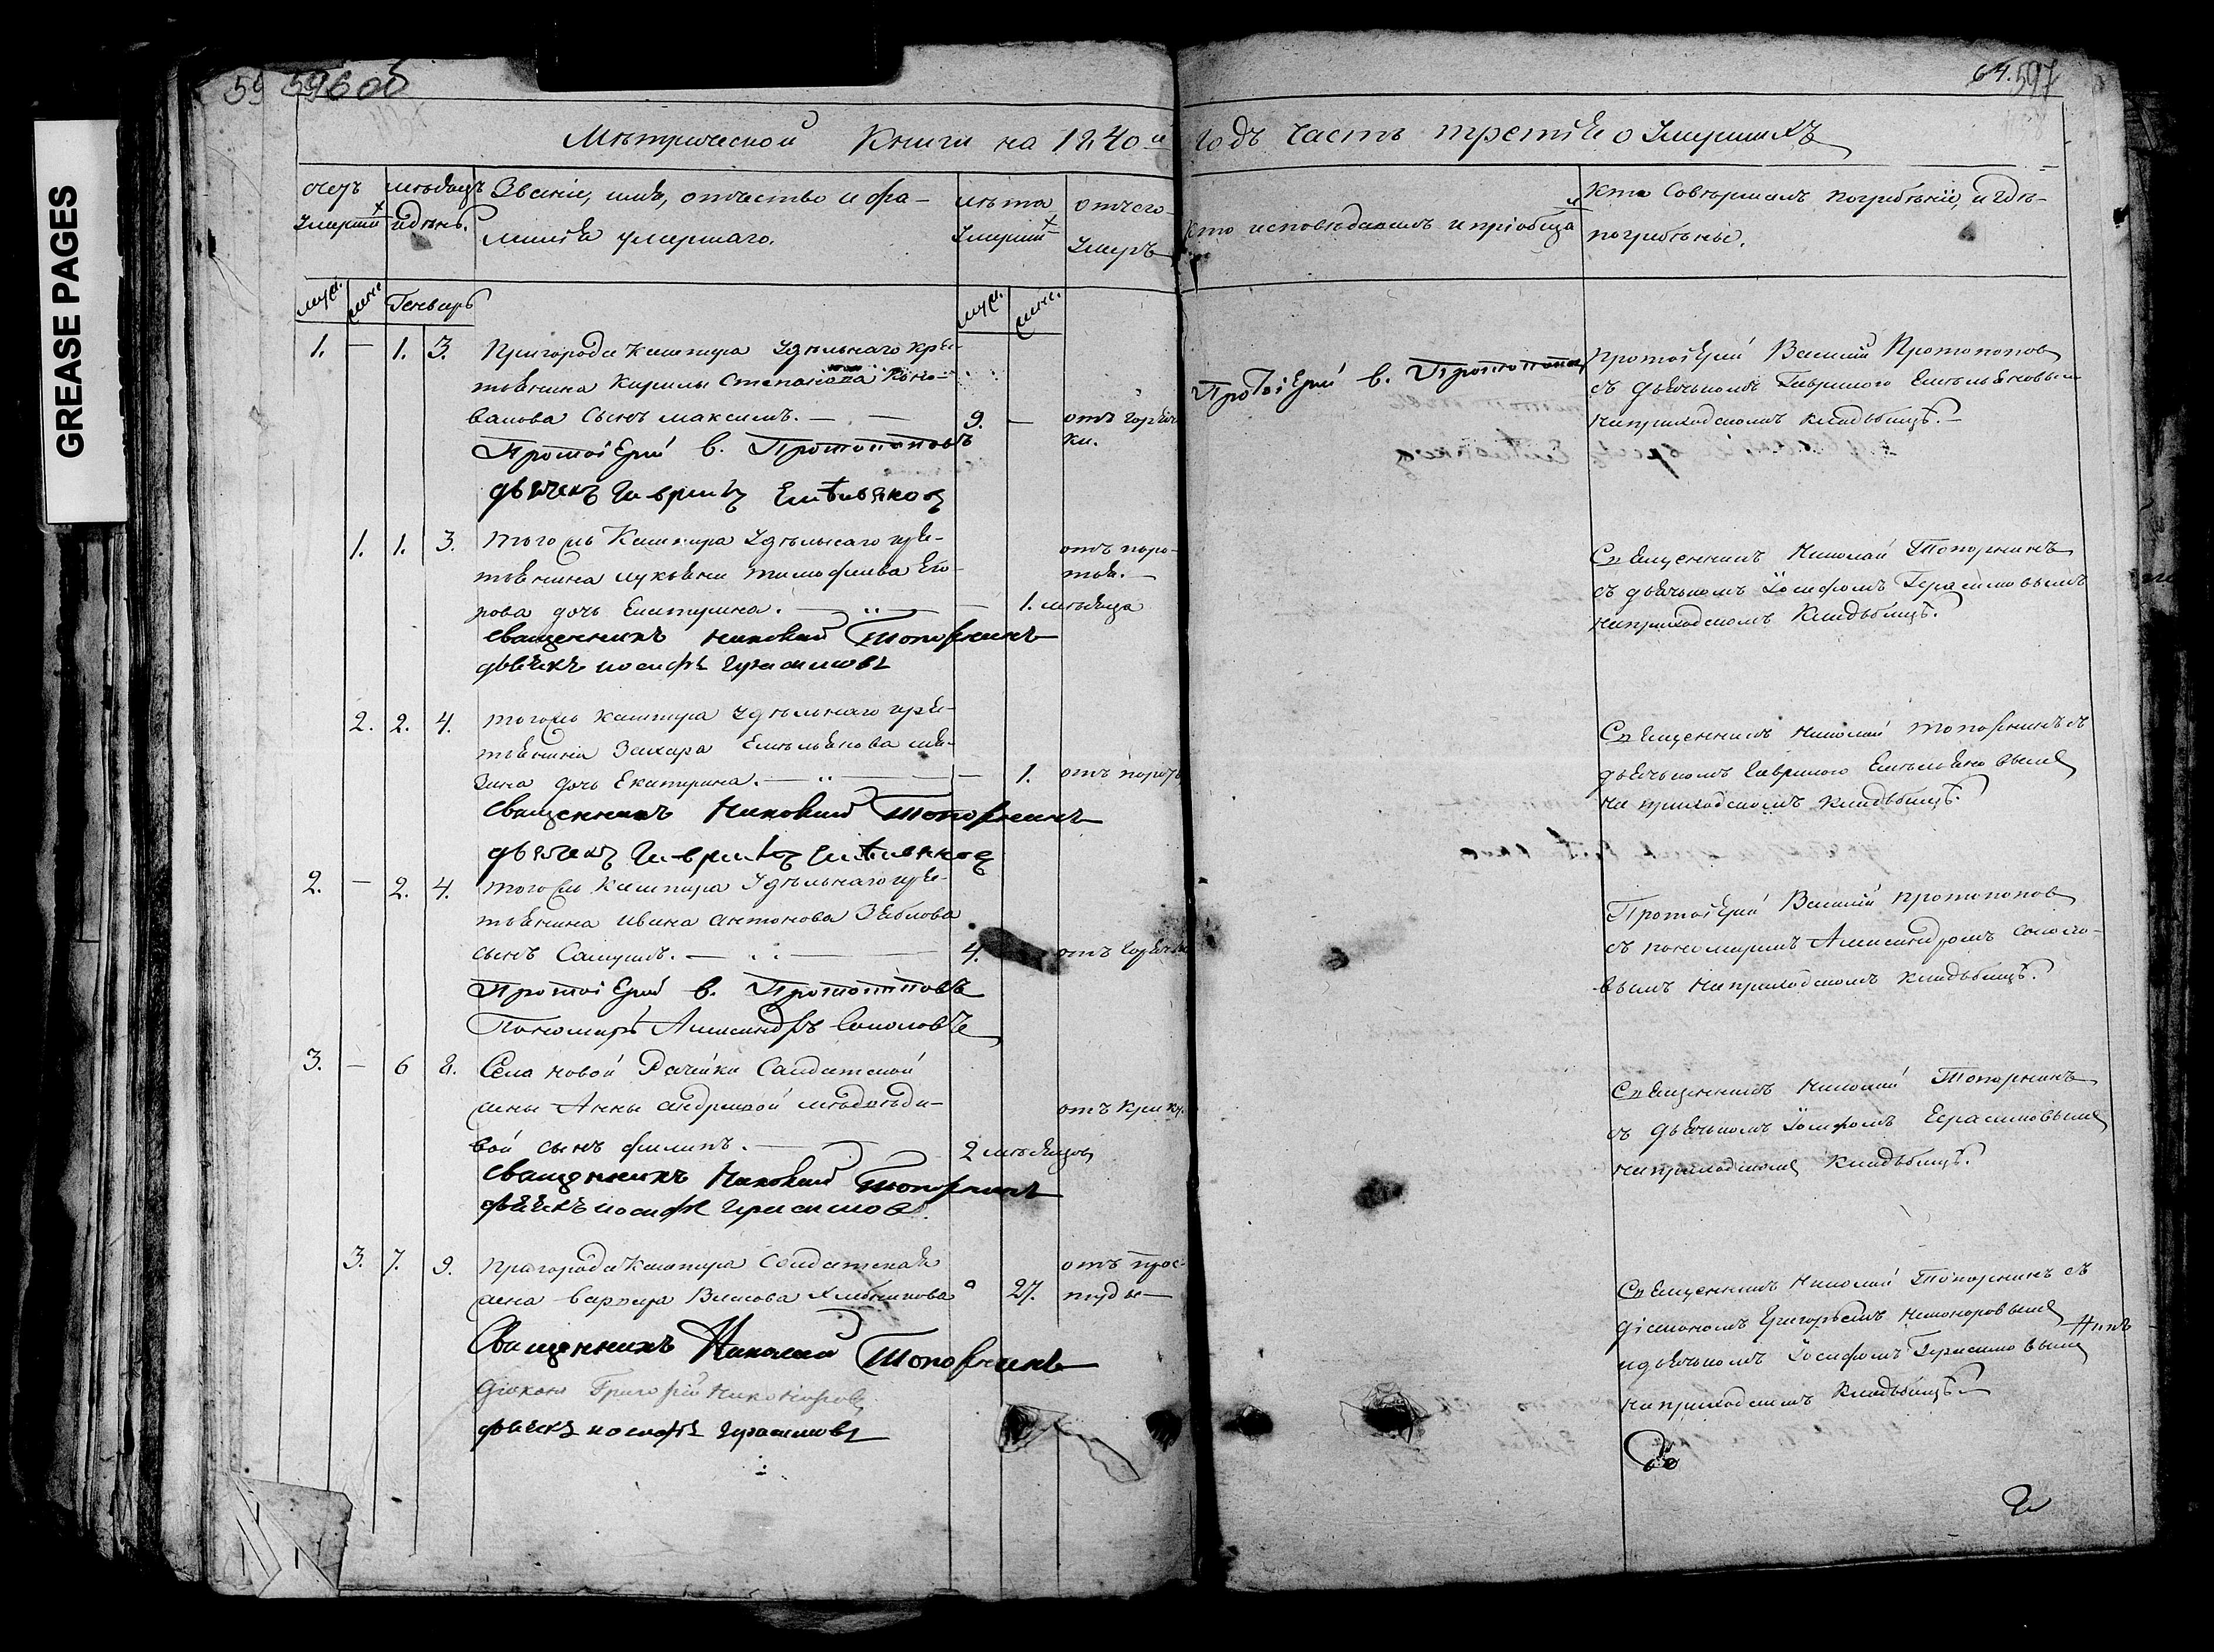 GREASE PAGES
596 об
64. 597
Метрической Книги на 1840й годъ часть третія о Умершихъ
счетъ умершихъ
мѣсяцъ и день.
Званіе, имя, отчество и фамилія умершаго.
лѣта умершихъ
отчего умеръ
Кто исповѣдывалъ и пріобща
Кто совершалъ погребеніе, и гдѣ погребены.
муж. жен. Генварь муж. жен.
1. — 1. 3. Пригорода Кашпира Удѣльнаго кре-
стьянина Кирилы Степанова Коно-
валова сынъ Максимъ. — — 9. — отъ горяч
ки.
Протоіерей В. Протопоповъ
дьячекъ Гаврилъ Емельяновъ
Протоіерей В. Протопоповъ
Протоіерей Василій Протопоповъ
съ дьячькомъ Гавриломъ Емельяновымъ
на приходскомъ кладьбищѣ. —
1. 1. 3. Тогожъ Кашпира Удѣльнаго кре-
стьянина Лукьяна Тимофеева Его-
рова дочь Екатерина. — — 1. мѣсяца
отъ поро-
тья. —
Священникъ Николай Топорнинъ
дьячекъ Иосифъ Герасимовъ
Священникъ Николай Топорнинъ
съ дьячькомъ Іосифомъ Герасимовымъ
на приходскомъ кладьбищѣ.
2. 2. 4. Тогожъ Кашпира Удѣльнаго кре-
стьянина Захара Емельянова
дочь Екатерина. — — 1. отъ пороть
Священникъ Николай Топорнинъ
дьячекъ Гаврилъ Емельяновъ
Священникъ Николай Топорнинъ съ
дьячькомъ Гавриломъ Емельяновымъ
на приходскомъ кладьбищѣ.
2. — 2. 4. Тогожъ Кашпира Удѣльнаго кре-
стьянина Ивана Антонова Зяблова
сынъ Самуилъ. — — 4. отъ горячьки
Протоіерей В. Протопоповъ
Пономарь Александръ Соколовъ
Протоіерей Василій Протопоповъ
съ пономаремъ Александромъ Соколо-
вымъ на приходскомъ кладьбищѣ.
3. — 6 8. Села Новой Рачейки Салдатской
жены Анны Андреевой Медвѣде-
вой сынъ Филипъ. — 2 мѣсяцовъ
отъ крику.
Священникъ Николай Топорнинъ
дьячекъ Иосифъ Герасимовъ.
Священникъ Николай Топорнинъ
съ дьячькомъ Іосифомъ Герасимовымъ
на приходскомъ кладьбищѣ.
3. 7. 9. Пригорода Кашпира Салдатская
жена Варвара Власова Хлебникова 27.
отъ прос-
туды —
Священникъ Николай Топорнинъ
Діаконъ Григорій Никоноровъ
дьячекъ Иосифъ Герасимовъ
Священникъ Николай Топорнинъ съ
діакономъ Григорьемъ Никоноровымъ
и дьячькомъ Іосифомъ Герасимовымъ
на приходскомъ кладьбищѣ. —